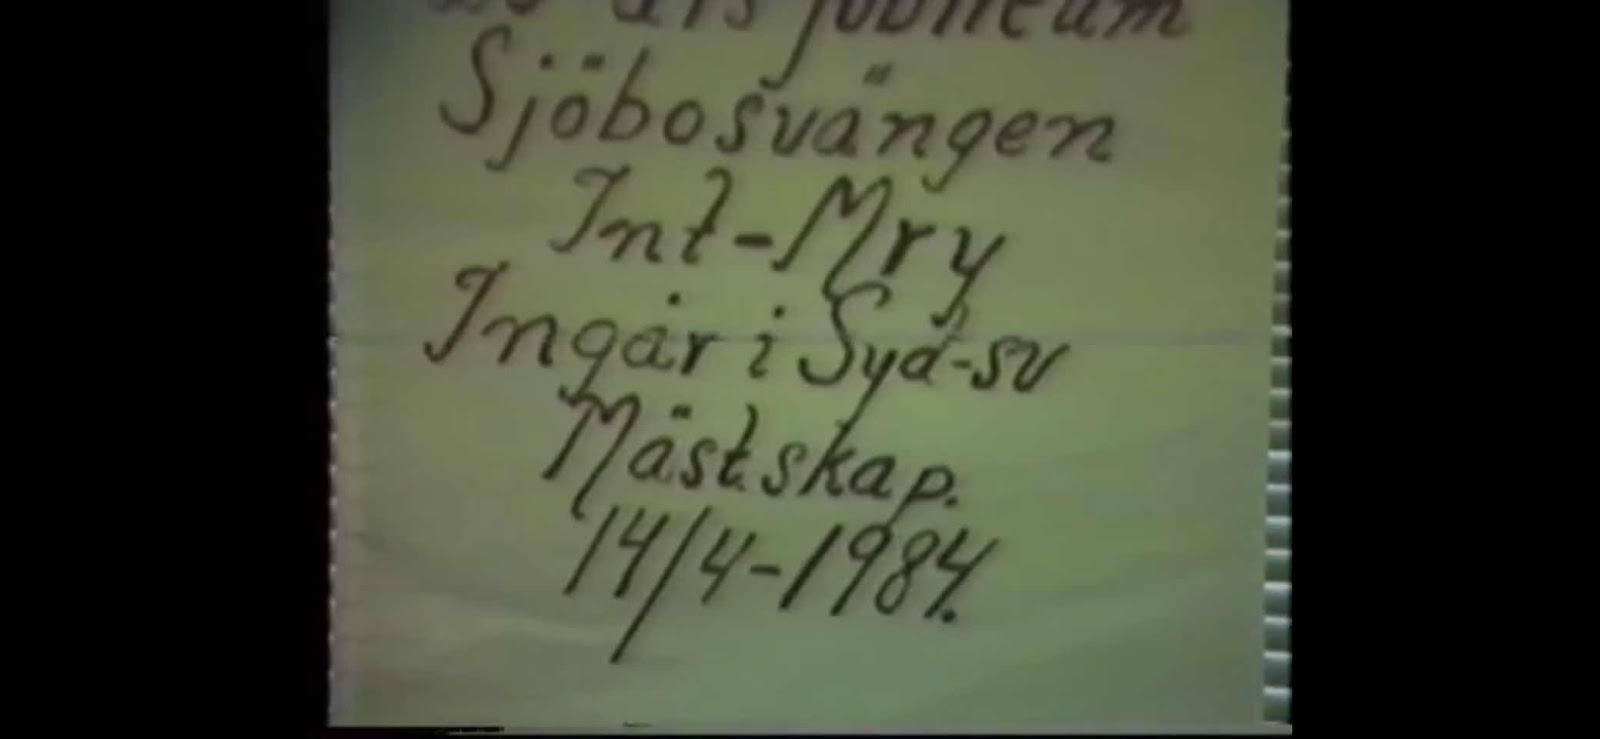 års jubileum
Sjöbosvängen
Int-Mry
Ingår i Syd-sv
Mästskap.
14/4-1984.